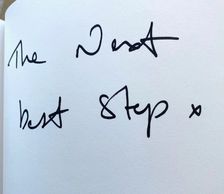 The Next
best Step x